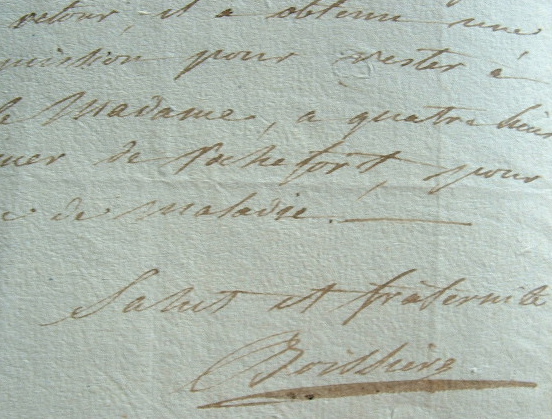 retour, et a obtenu une
mission pour rester à
le Madame, a quatre lieus
uer de Rochefort, pour
e de maladie.
Salut et fraternité
Boissière